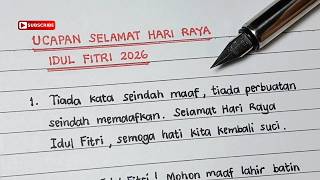 SUBSCRIBE
UCAPAN SELAMAT HARI RAYA
IDUL FITRI 2026
1. Tiada kata seindah maaf, tiada perbuatan
seindah memaafkan. Selamat Hari Raya
Idul Fitri, semoga hati kita kembali suci.
Fitri! Mohon maaf lahir batin